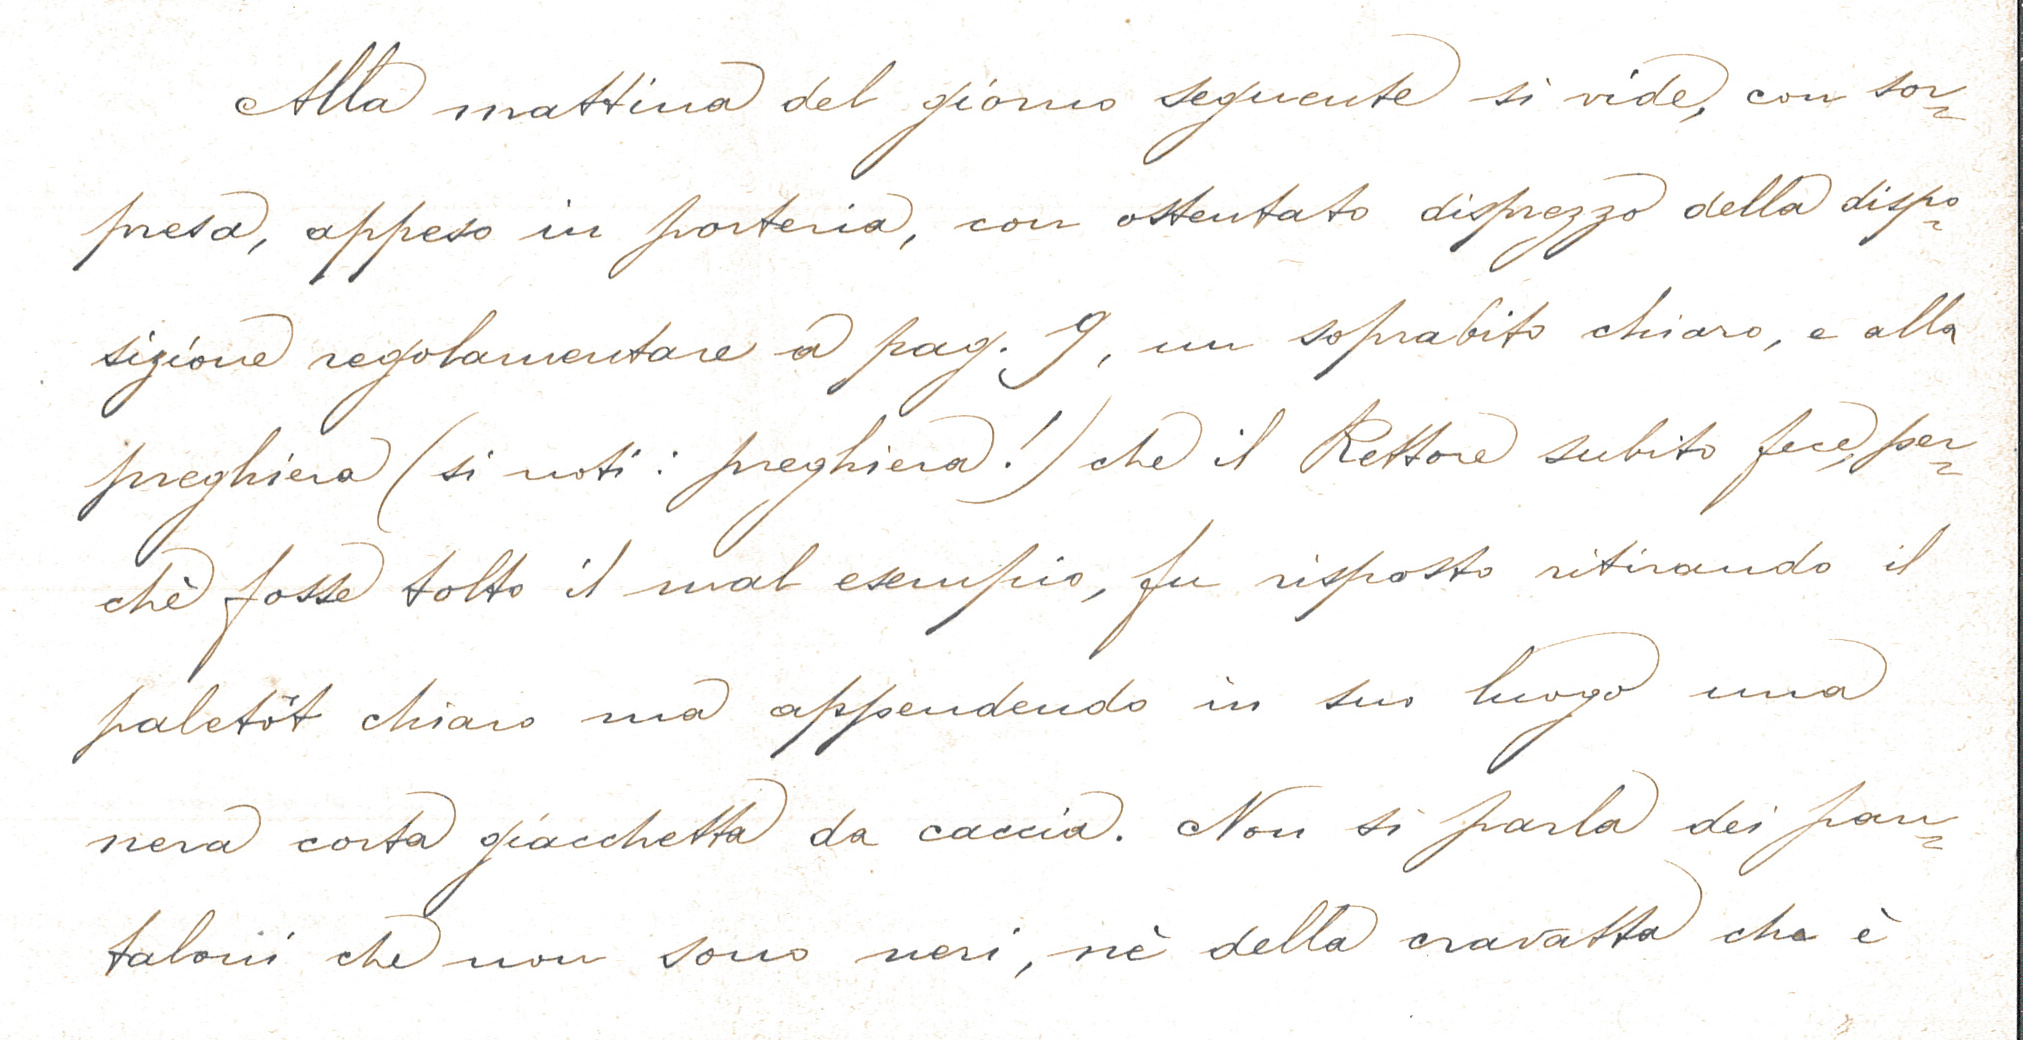 Alla mattina del giorno seguente si vide, con sor-
presa, appeso in porteria, con ostentato disprezzo della dispo-
sizione regolamentare a pag. 9, un soprabito chiaro, e alla
preghiera (si noti: preghiera!) che il Rettore subito fece, per-
chè fosse tolto il mal esempio, fu risposto ritirando il
paletôt chiaro ma appendendo in suo luogo una
nera corta giacchetta da caccia. Non si parla dei pan-
taloni che non sono neri, nè della cravatta che è